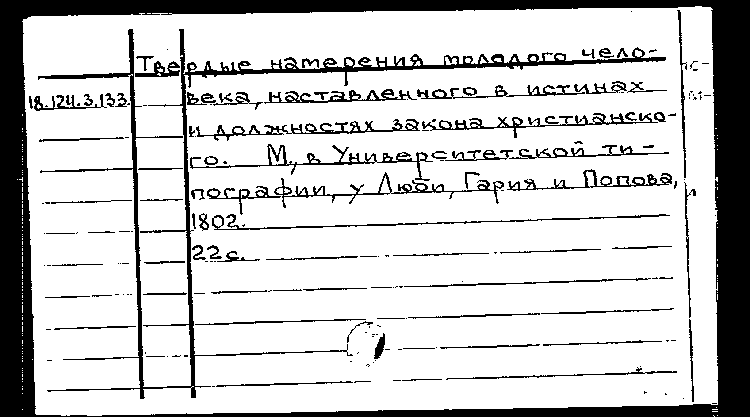 Твердые намерения молодого чело-
18.124.3.133 века, наставленного в истинах
и должностях закона христианско-
го. М., в Университетской ти-
пографии, у Люби, Гария и Попова,
1802.
22 с.